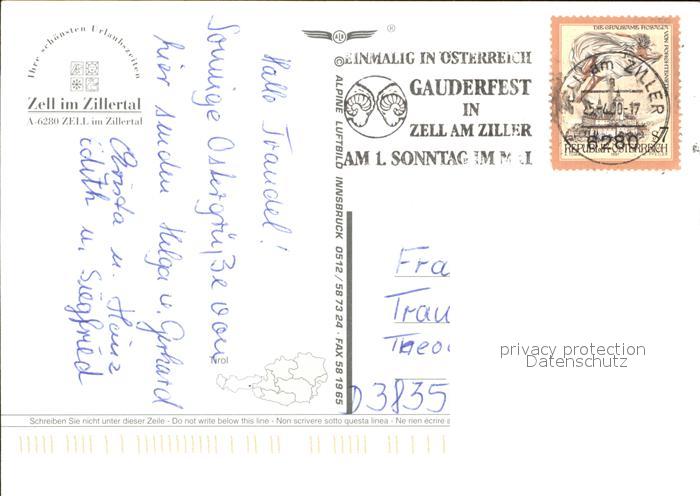 Ihre schönsten Urlaubszeiten
Zell im Zillertal
A-6280 ZELL im Zillertal
Hallo Traudel!
Sonnige Ostergrüße von
hier senden Helga u. Gerhard
Christa u. Heinz
Edith u. Siegfried
© ALPINE LUFTBILD INNSBRUCK 0512/58 73 24 · FAX 58 19 65
®
EINMALIG IN ÖSTERREICH
GAUDERFEST
IN
ZELL AM ZILLER
AM 1. SONNTAG IM MAI
DIE GRAUSAME ROSALIA VON FORCHTENSTEIN
am ZILLER
-17
6280
7
REPUBLIK ÖSTERREICH
Fra
Trau
Theo
D 3835
Tirol
privacy protection
Datenschutz
Schreiben Sie nicht unter dieser Zeile - Do not write below this line - Non scrivere sotto questa linea - Ne rien écrire